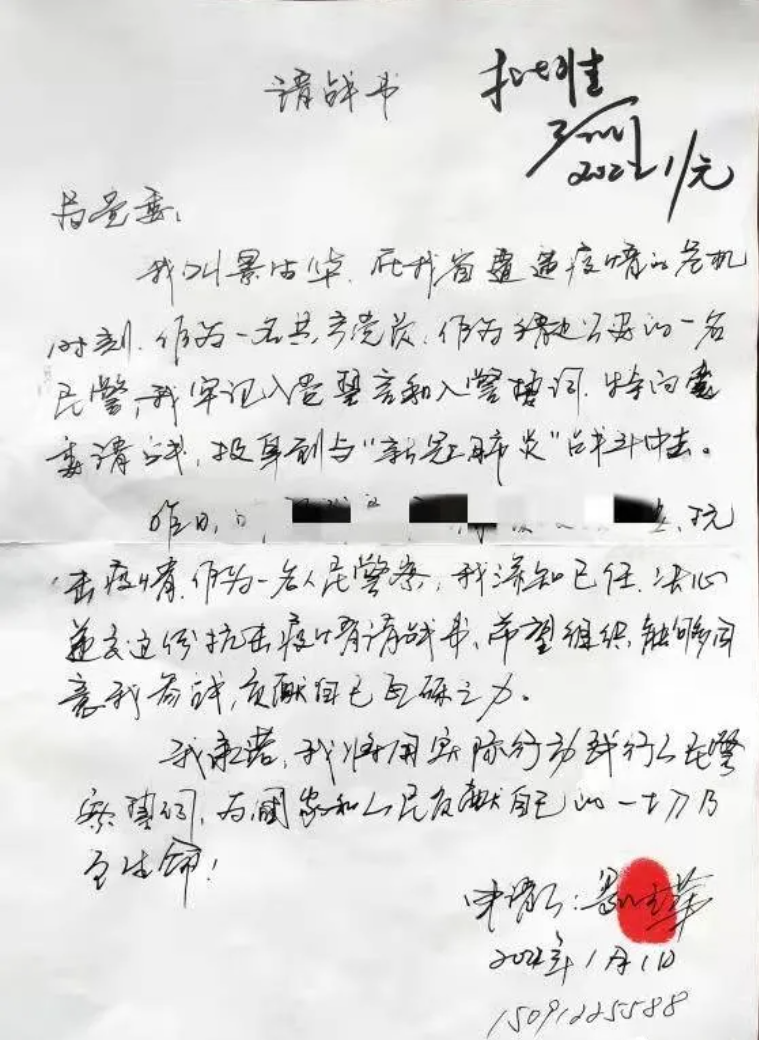 请战书
批准
2022.1/元
局党委:
我叫景占华,在我省遭遇疫情的危机
时刻,作为一名共产党员,作为缉毒公安的一名
民警,我牢记入党誓言和入警誓词,特向党
委请战,投身到与“新冠肺炎”战斗中去。
昨日,
抗
击疫情,作为一名人民警察,我深知己任,决心
递交这份抗击疫情请战书,希望组织能够同
意我参战,贡献自己绵薄之力。
我承诺,我将用实际行动践行人民警
察誓词,为国家和人民贡献自己的一切乃
至生命!
申请人:景占华
2022年1月1日
15091225588